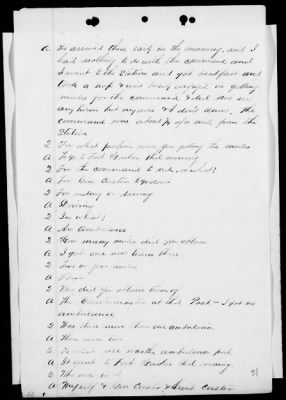 A He arrived there early in the morning, and I
had nothing to do with the command and
I went to the Station and got breakfast and
took a nap & was being in
getting
mules for the command & did not see
any horses but my own & I don't know. The
command was about ¼ of a mile from the
Station
Q For what purpose were you getting the mules
A To go to Fort Harker that evening
Q For the command to ride, or what?
A For Gen Custer &
Q For riding or driving
A Driving
Q In what?
A An Ambulance
Q How many mules did you obtain
A I got one new team there
Q Two or four mules
A Four
Q Who did you obtain them of
A The Quartermaster at that Post – I got no
ambulance
Q Was there more than one ambulance
A There were two
Q To what use was the ambulance put
A It went to Fort Harker that evening
Q Who were in it
A Myself & Gen Custer & Lieut Custer
91